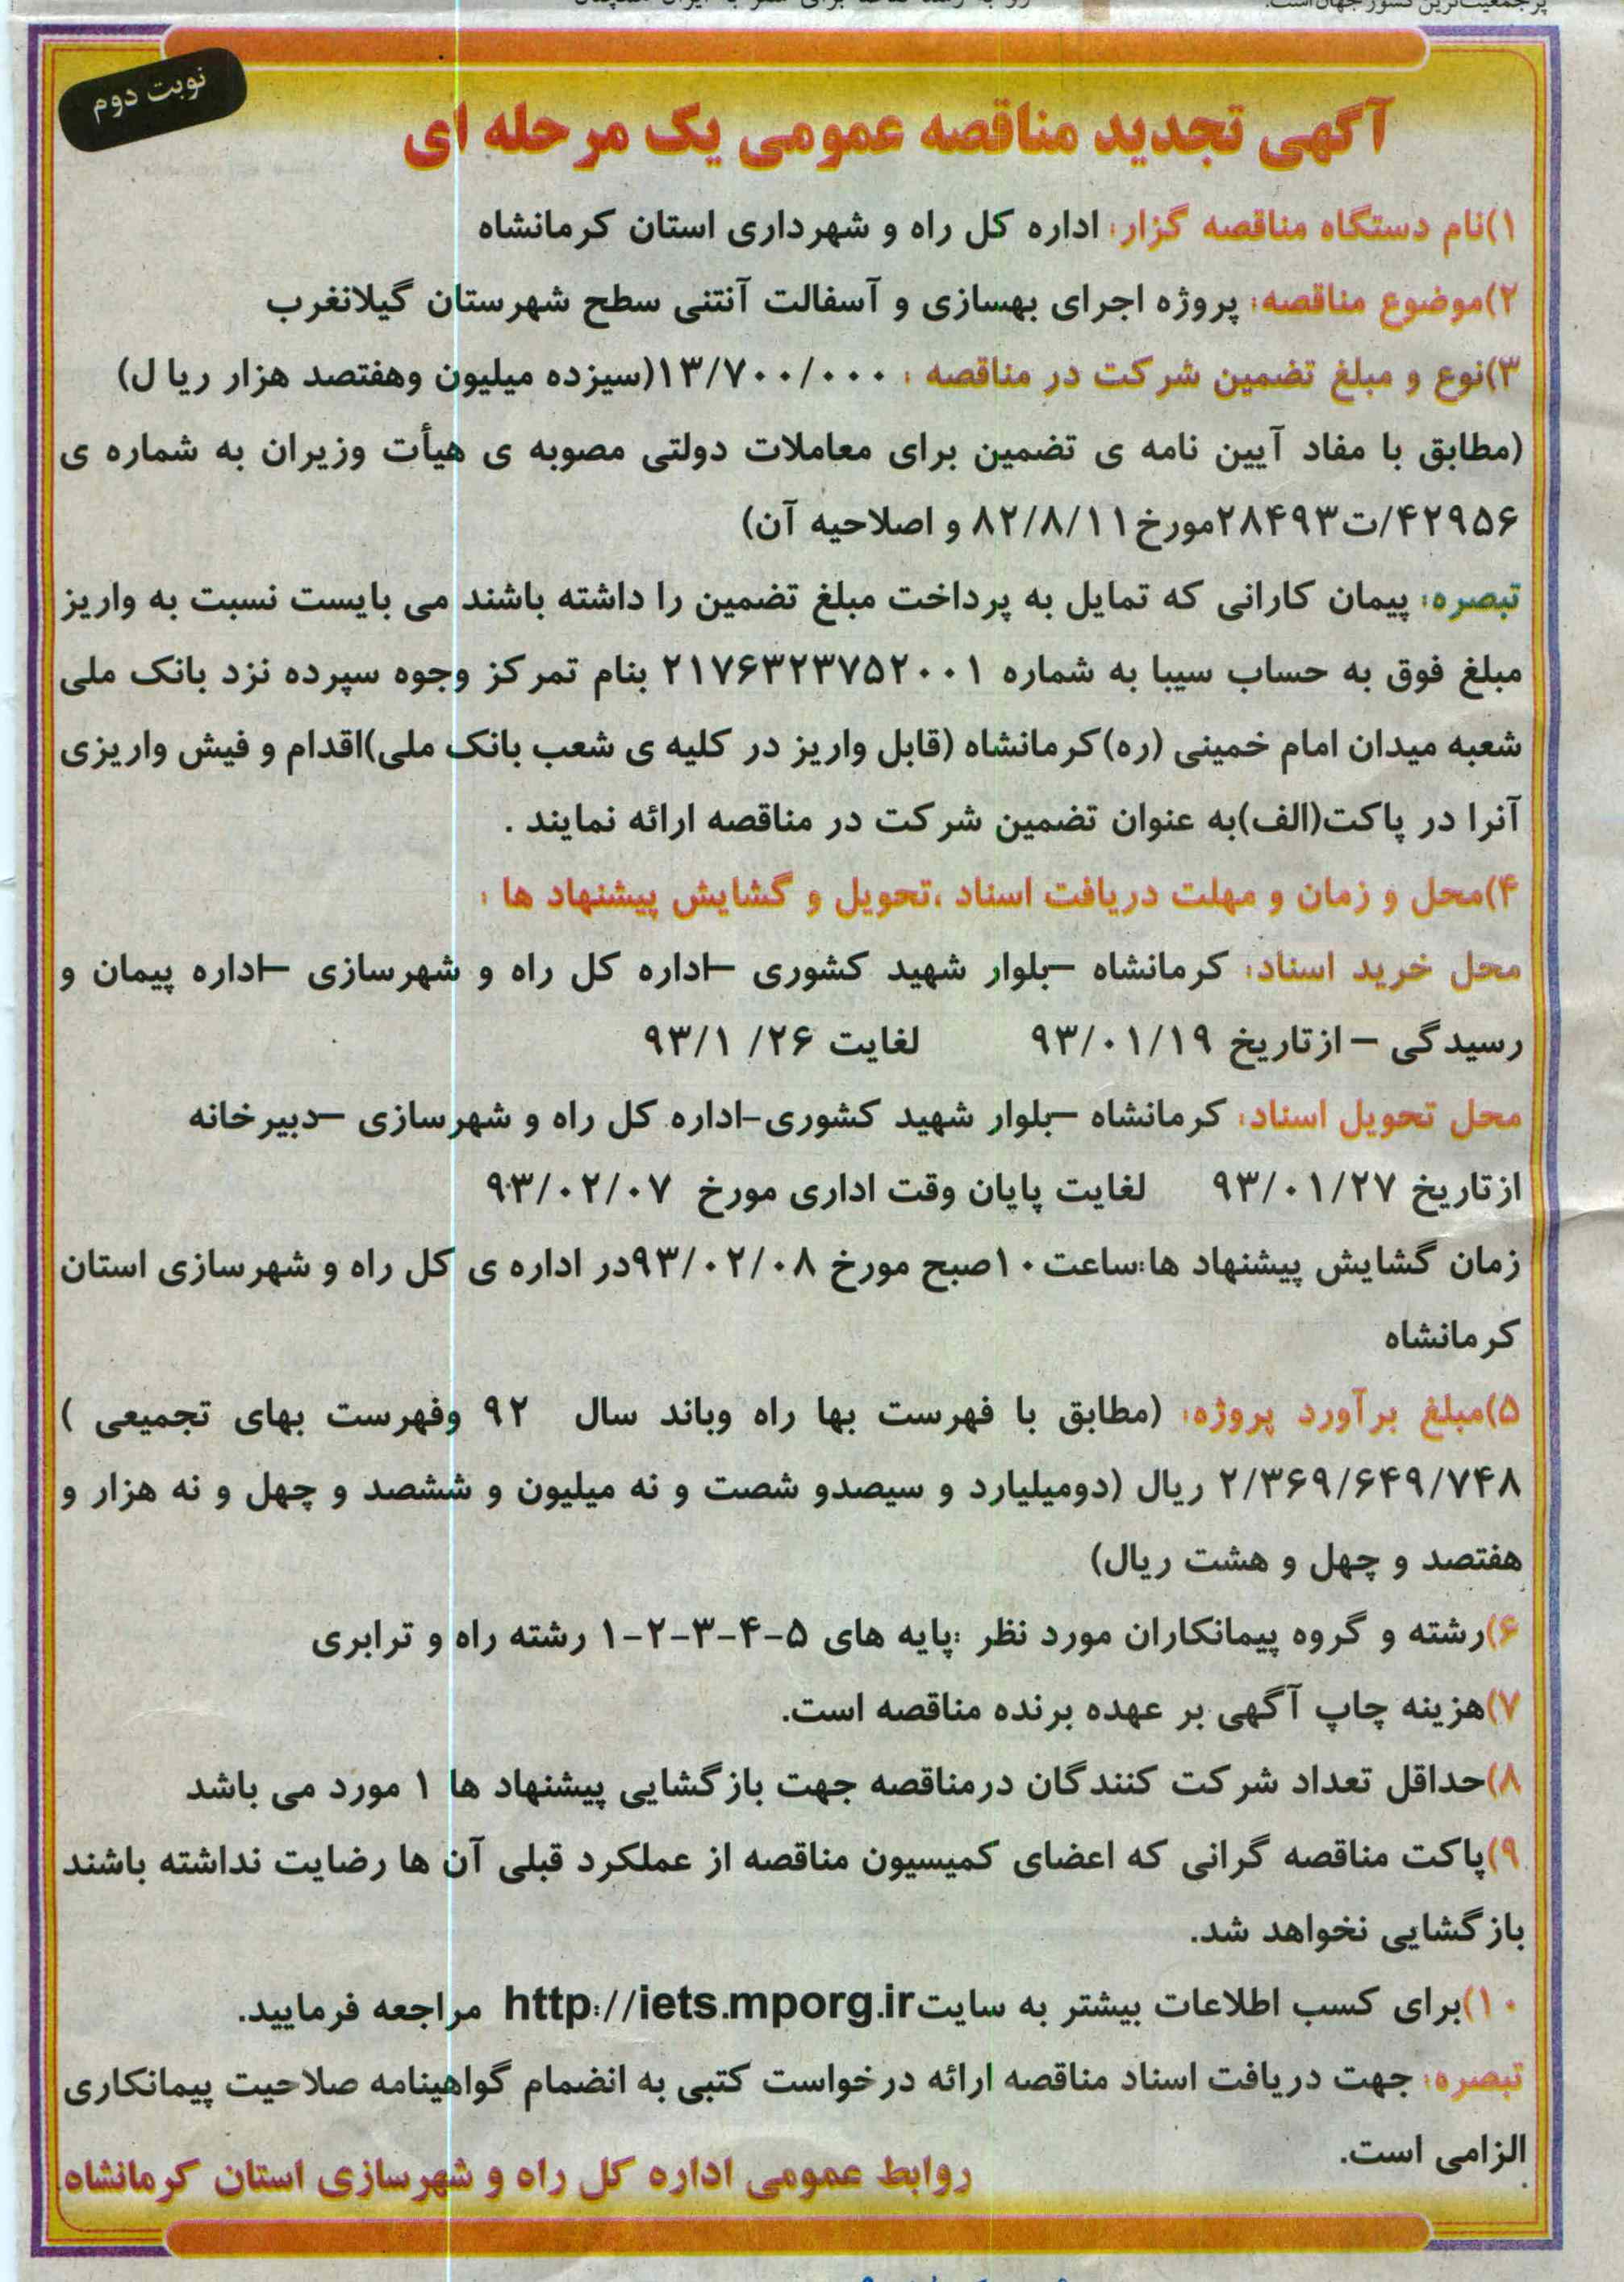 پرجمعیت‌ترین کشور جهان است.
نوبت دوم
آگهی تجدید مناقصه عمومی یک مرحله ای
۱)نام دستگاه مناقصه گزار: اداره کل راه و شهرداری استان کرمانشاه
۲)موضوع مناقصه: پروژه اجرای بهسازی و آسفالت آنتنی سطح شهرستان گیلانغرب
۳)نوع و مبلغ تضمین شرکت در مناقصه : ۱۳/۷۰۰/۰۰۰(سیزده میلیون وهفتصد هزار ریا ل)
(مطابق با مفاد آیین نامه ی تضمین برای معاملات دولتی مصوبه ی هیأت وزیران به شماره ی
۴۲۹۵۶/ت۲۸۴۹۳مورخ۸۲/۸/۱۱ و اصلاحیه آن)
تبصره: پیمان کارانی که تمایل به پرداخت مبلغ تضمین را داشته باشند می بایست نسبت به واریز
مبلغ فوق به حساب سیبا به شماره ۲۱۷۶۳۲۳۷۵۲۰۰۱ بنام تمرکز وجوه سپرده نزد بانک ملی
شعبه میدان امام خمینی (ره)کرمانشاه (قابل واریز در کلیه ی شعب بانک ملی)اقدام و فیش واریزی
آنرا در پاکت(الف)به عنوان تضمین شرکت در مناقصه ارائه نمایند .
۴)محل و زمان و مهلت دریافت اسناد ،تحویل و گشایش پیشنهاد ها :
محل خرید اسناد: کرمانشاه –بلوار شهید کشوری –اداره کل راه و شهرسازی –اداره پیمان و
رسیدگی – ازتاریخ ۹۳/۰۱/۱۹ لغایت ۲۶/ ۹۳/۱
محل تحویل اسناد: کرمانشاه –بلوار شهید کشوری-اداره کل راه و شهرسازی –دبیرخانه
ازتاریخ ۹۳/۰۱/۲۷ لغایت پایان وقت اداری مورخ ۹۳/۰۲/۰۷
زمان گشایش پیشنهاد ها:ساعت۱۰صبح مورخ ۹۳/۰۲/۰۸در اداره ی کل راه و شهرسازی استان
کرمانشاه
۵)مبلغ برآورد پروژه: (مطابق با فهرست بها راه وباند سال ۹۲ وفهرست بهای تجمیعی )
۲/۳۶۹/۶۴۹/۷۴۸ ریال (دومیلیارد و سیصدو شصت و نه میلیون و ششصد و چهل و نه هزار و
هفتصد و چهل و هشت ریال)
۶)رشته و گروه پیمانکاران مورد نظر :پایه های ۵-۴-۳-۲-۱ رشته راه و ترابری
۷)هزینه چاپ آگهی بر عهده برنده مناقصه است.
۸)حداقل تعداد شرکت کنندگان درمناقصه جهت بازگشایی پیشنهاد ها ۱ مورد می باشد
۹)پاکت مناقصه گرانی که اعضای کمیسیون مناقصه از عملکرد قبلی آن ها رضایت نداشته باشند
بازگشایی نخواهد شد.
۱۰)برای کسب اطلاعات بیشتر به سایتhttp://iets.mporg.ir مراجعه فرمایید.
تبصره: جهت دریافت اسناد مناقصه ارائه درخواست کتبی به انضمام گواهینامه صلاحیت پیمانکاری
الزامی است.
روابط عمومی اداره کل راه و شهرسازی استان کرمانشاه